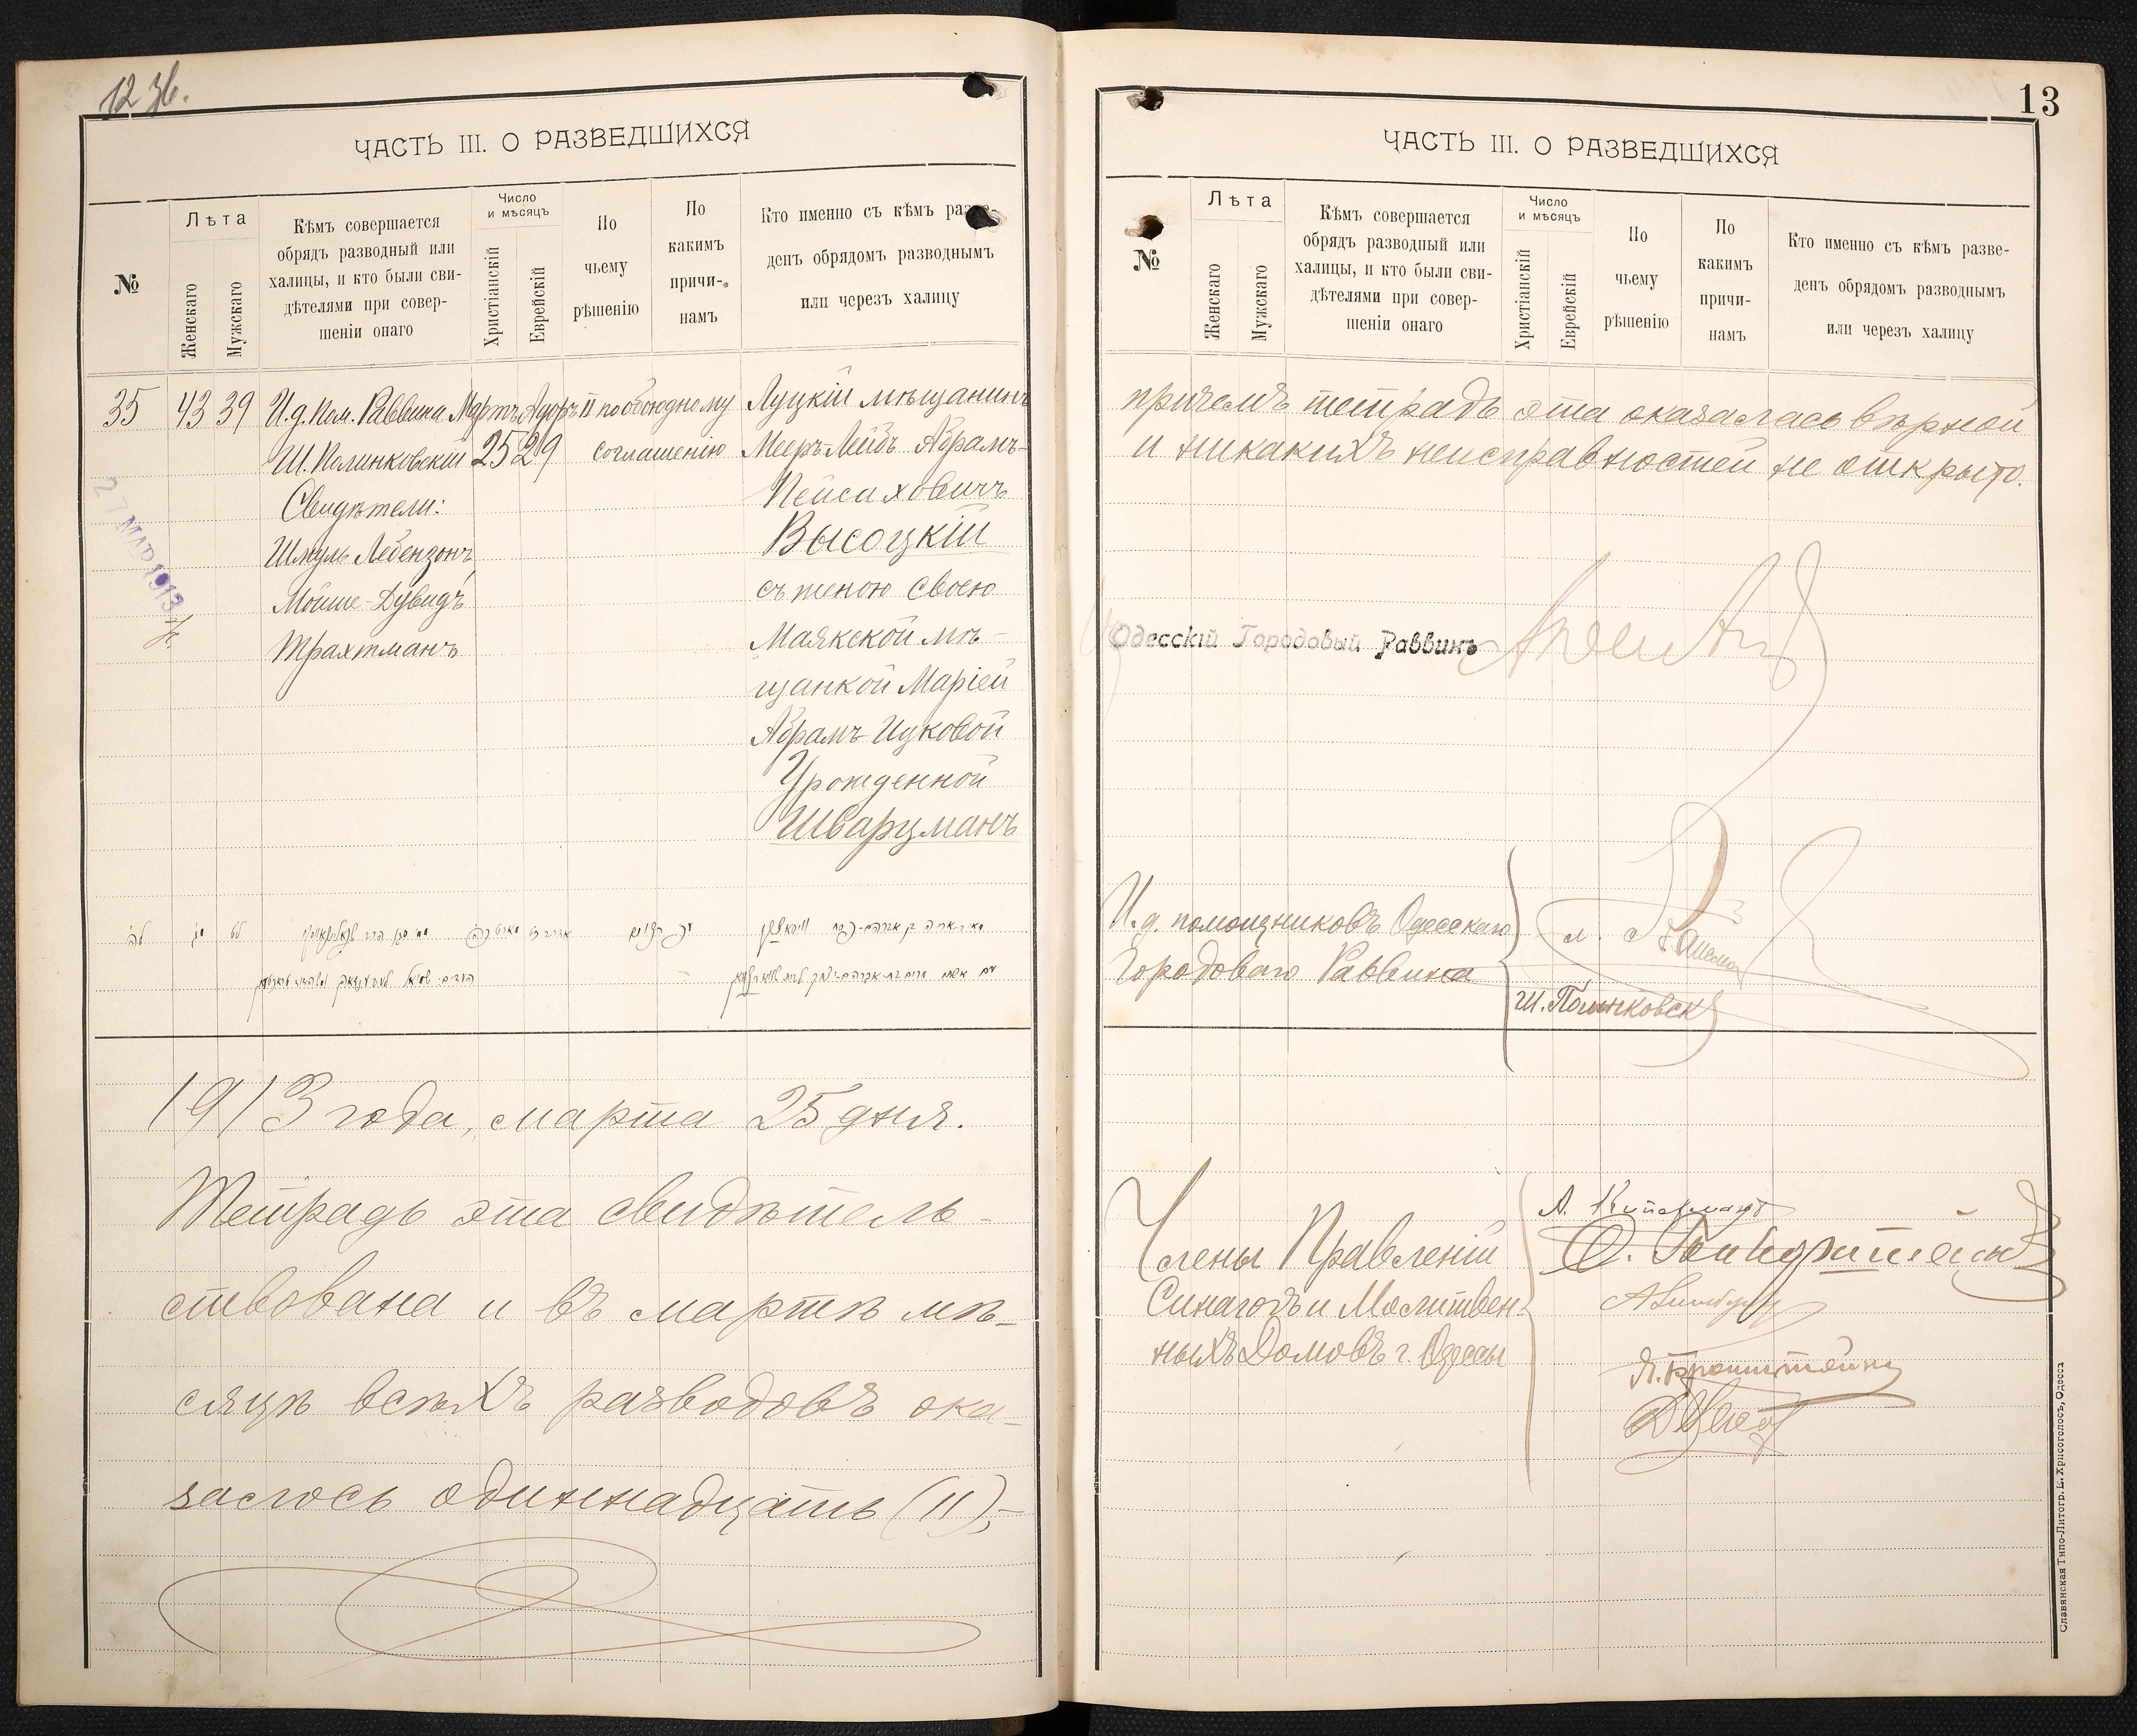 12 зв.
ЧАСТЬ III. О РАЗВЕДШИХСЯ
№
Лѣта
Женскаго
Мужскаго
Кѣмъ совершается
обрядъ разводный или
халицы, и кто были сви-
дѣтелями при совер-
шеніи онаго
Число
и мѣсяцъ
Христіанскій
Еврейскій
По
чьему
рѣшенію
По
какимъ
причи-
намъ
Кто именно съ кѣмъ разве-
денъ обрядомъ разводнымъ
или черезъ халицу
35 43 39 И.д. Пом. Раввина Мартъ Адоръ II по обоюдному Луцкій мѣщанинъ
Ш. Полинковскій 25 29 соглашенію Мееръ-Лейбъ Абрамъ-
Свидѣтели: Пейсаховичъ
Шмуль Лебензонъ Высоцкій
Мойше-Дувидъ съ женою своею
Трахтманъ Маякской мѣ-
щанкой Маріей
Абрамъ-Ицковой
Урожденной
Шварцманъ
27 МАР 1913
1913 года, марта 25 дня.
Тетрадь эта свидѣтель-
ствована и въ мартѣ мѣ-
сяцѣ всѣхъ разводовъ ока-
залось одиннадцать (11),-
13
ЧАСТЬ III. О РАЗВЕДШИХСЯ
№
Лѣта
Женскаго
Мужскаго
Кѣмъ совершается
обрядъ разводный или
халицы, и кто были сви-
дѣтелями при совер-
шеніи онаго
Число
и мѣсяцъ
Христіанскій
Еврейскій
По
чьему
рѣшенію
По
какимъ
причи-
намъ
Кто именно съ кѣмъ разве-
денъ обрядомъ разводнымъ
или черезъ халицу
причемъ тетрадь эта оказалась вѣрной
и никакихъ неисправностей не открыто.
Одесскій Городовый Раввинъ
И.д. помощниковъ Одесскаго
Городоваго Раввина
Ш. Полинковск
Члены Правленій
Синагогъ и Молитвен-
ныхъ Домовъ г. Одессы
Я. Бронштейнъ
Славянская Типо-Литогр. Е. Хрисогелосъ, Одесса